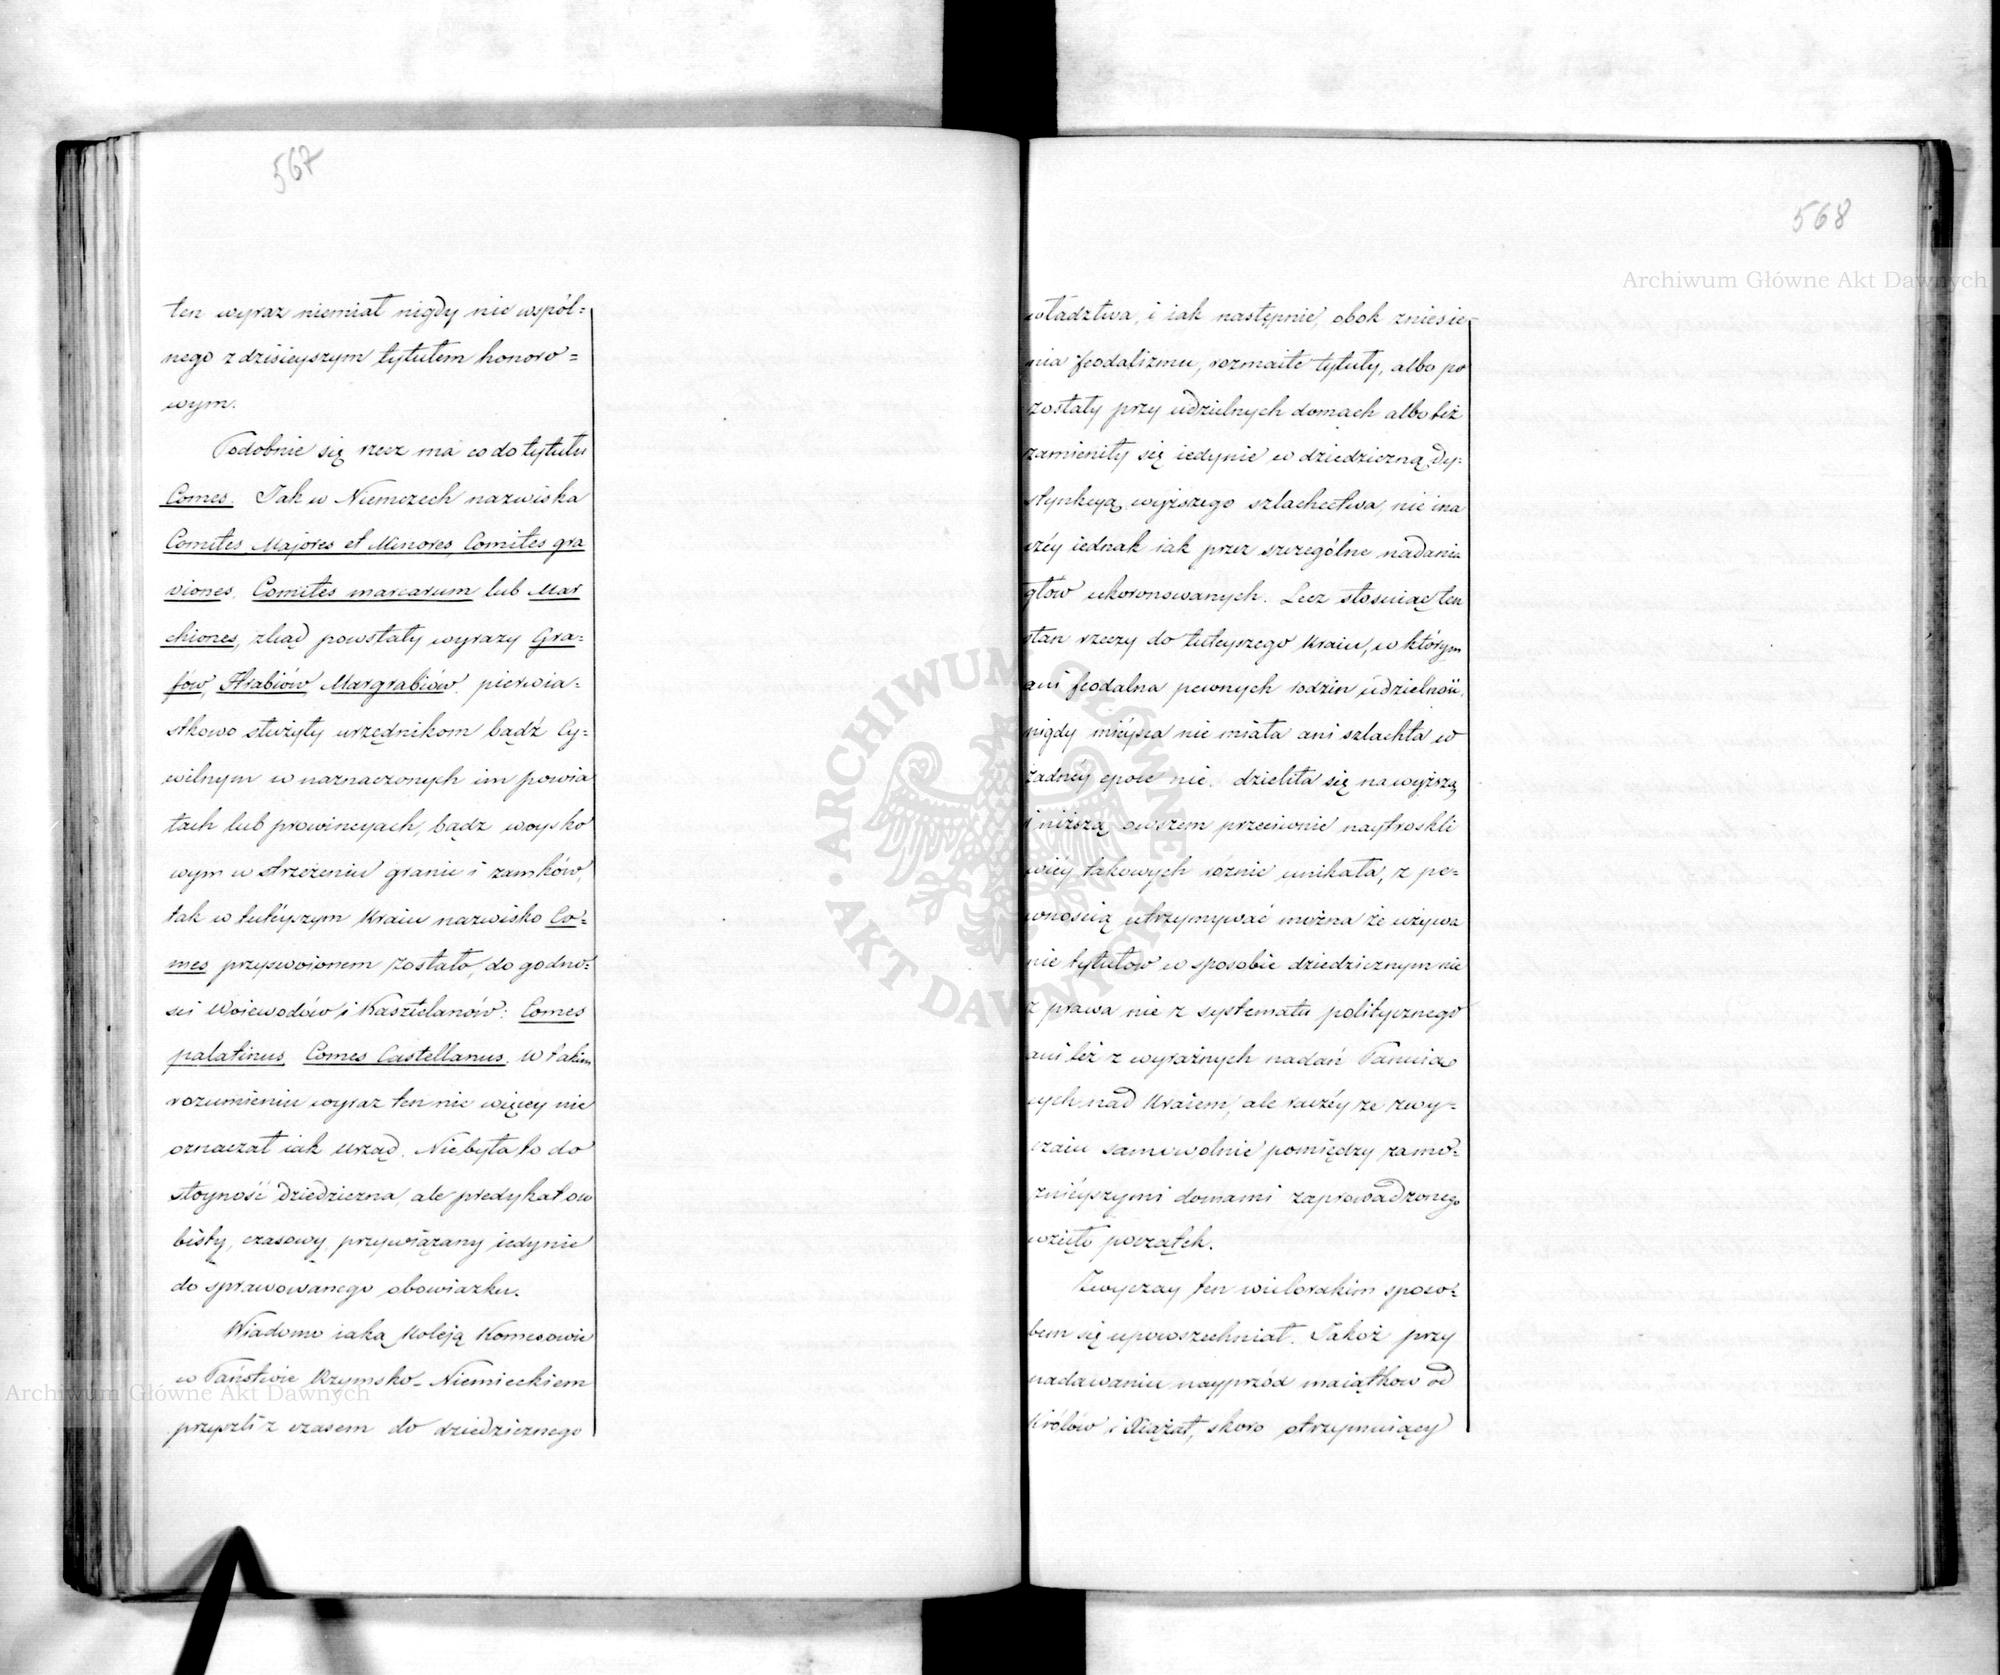 567
ten wyraz niemiał nigdy nic wspól=
nego z dzisieyszym tytułem honoro=
wym.
Podobnie się rzecz ma co do tytułu
Comes. Jak w Niemczech nazwiska
Comites Majores et Minores, Comites gra
viones, Comites marcarum lub Mar
chiones, zkąd powstały wyrazy Gra=
fów, Hrabiów, Margrabiów, pierwia=
stkowo służyły urzędnikom bądź Cy=
wilnym w naznaczonych im powia
tach lub prowincyach, bądz woysko
wym w strzeżeniu granic i zamków,
tak w tutéyszym Kraiu nazwisko Co=
mes przyswoionem zostało, do godno=
sci Woiewodów i Kasztelanów: Comes
palatinus, Comes Castellanus. W takim
rozumieniu wyraz ten nic więcey nie
oznaczał iak urząd. Niebyła to do
stoyność dziedziczna, ale predykat oso
bisty, czasowy, przywiązany iedynie
do sprawowanego obowiazku.
Wiadomo iaką Koleją Komesowie
w Państwie Rzymsko-Niemieckiem
przyszli z czasem do dziedzicznego
568
władztwa, i iak następnie, obok zniesie=
nia feodalizmu, rozmaite tytuły, albo po
zostały przy udzielnych domach albo też
zamieniły się iedynie w dziedziczną dy=
stynkcyą wyższego szlachectwa, nie ina
czéy iednak iak przez szczególne nadania
głow ukoronowanych. Lecz stosuiąc ten
stan rzeczy do tuteyszego Kraiu, w którym
ani feodalna pewnych rodzin udzielność,
nigdy miéysca nie miała ani szlachta w
żadnéy epoce nie dzieliła się na wyższą
i niższą, owszem przeciwnie naytroskli
wiéy takowych różnic unikała, z pe=
wnością utrzymywać można że używa
nie tytułow w sposobie dziedzicznym nie
z prawa nie z systematu politycznego
ani też z wyraźnych nadań Panuią
cych nad Kraiem, ale raczéy ze zwy=
czaiu samowolnie pomiędzy zamo=
żniéyszymi domami zaprowadzonego
wzięło początek.
Zwyczay ten wielorakim sposo=
bem się upowszechniał. Jakoż przy
nadawaniu nayprzód maiątkow od
Królów i Xiążąt, skoro otrzymuiący
Archiwum Główne Akt Dawnych
Archiwum Główne Akt Dawnych
ARCHIWUM GŁÓWNE
AKT DAWNYCH